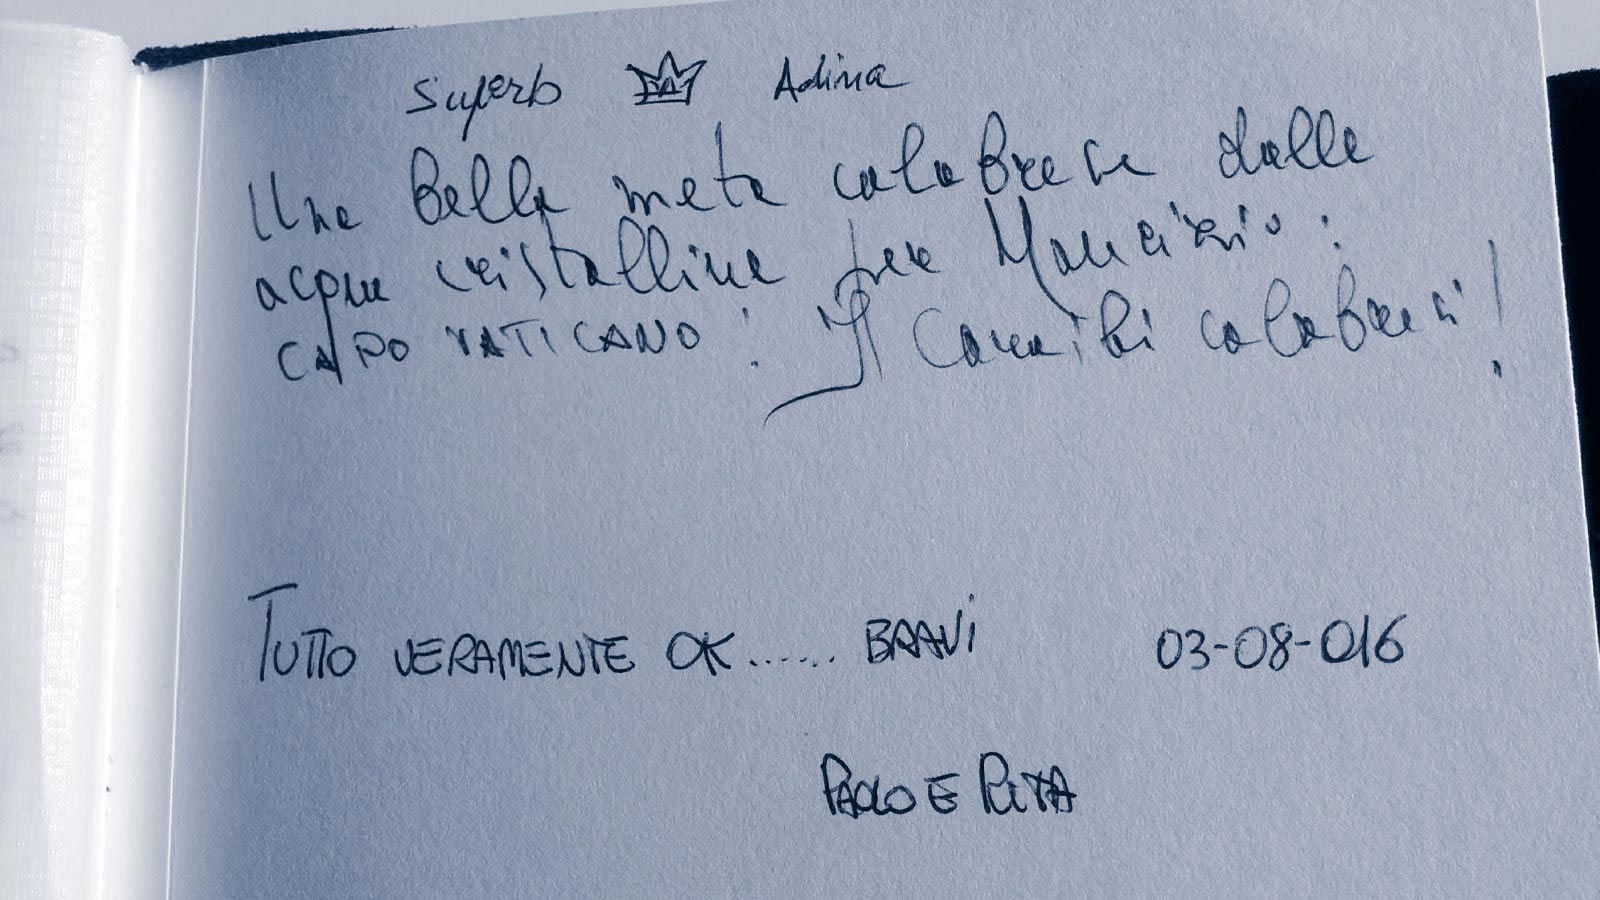 Superb Adina
Una Bella meta calabrese dalle
acque cristalline per Maurizio:
CAPO VATICANO! I Caraibi calabresi!
TUTTO VERAMENTE OK...... BRAVI 03-08-016
PAOLO E RITA